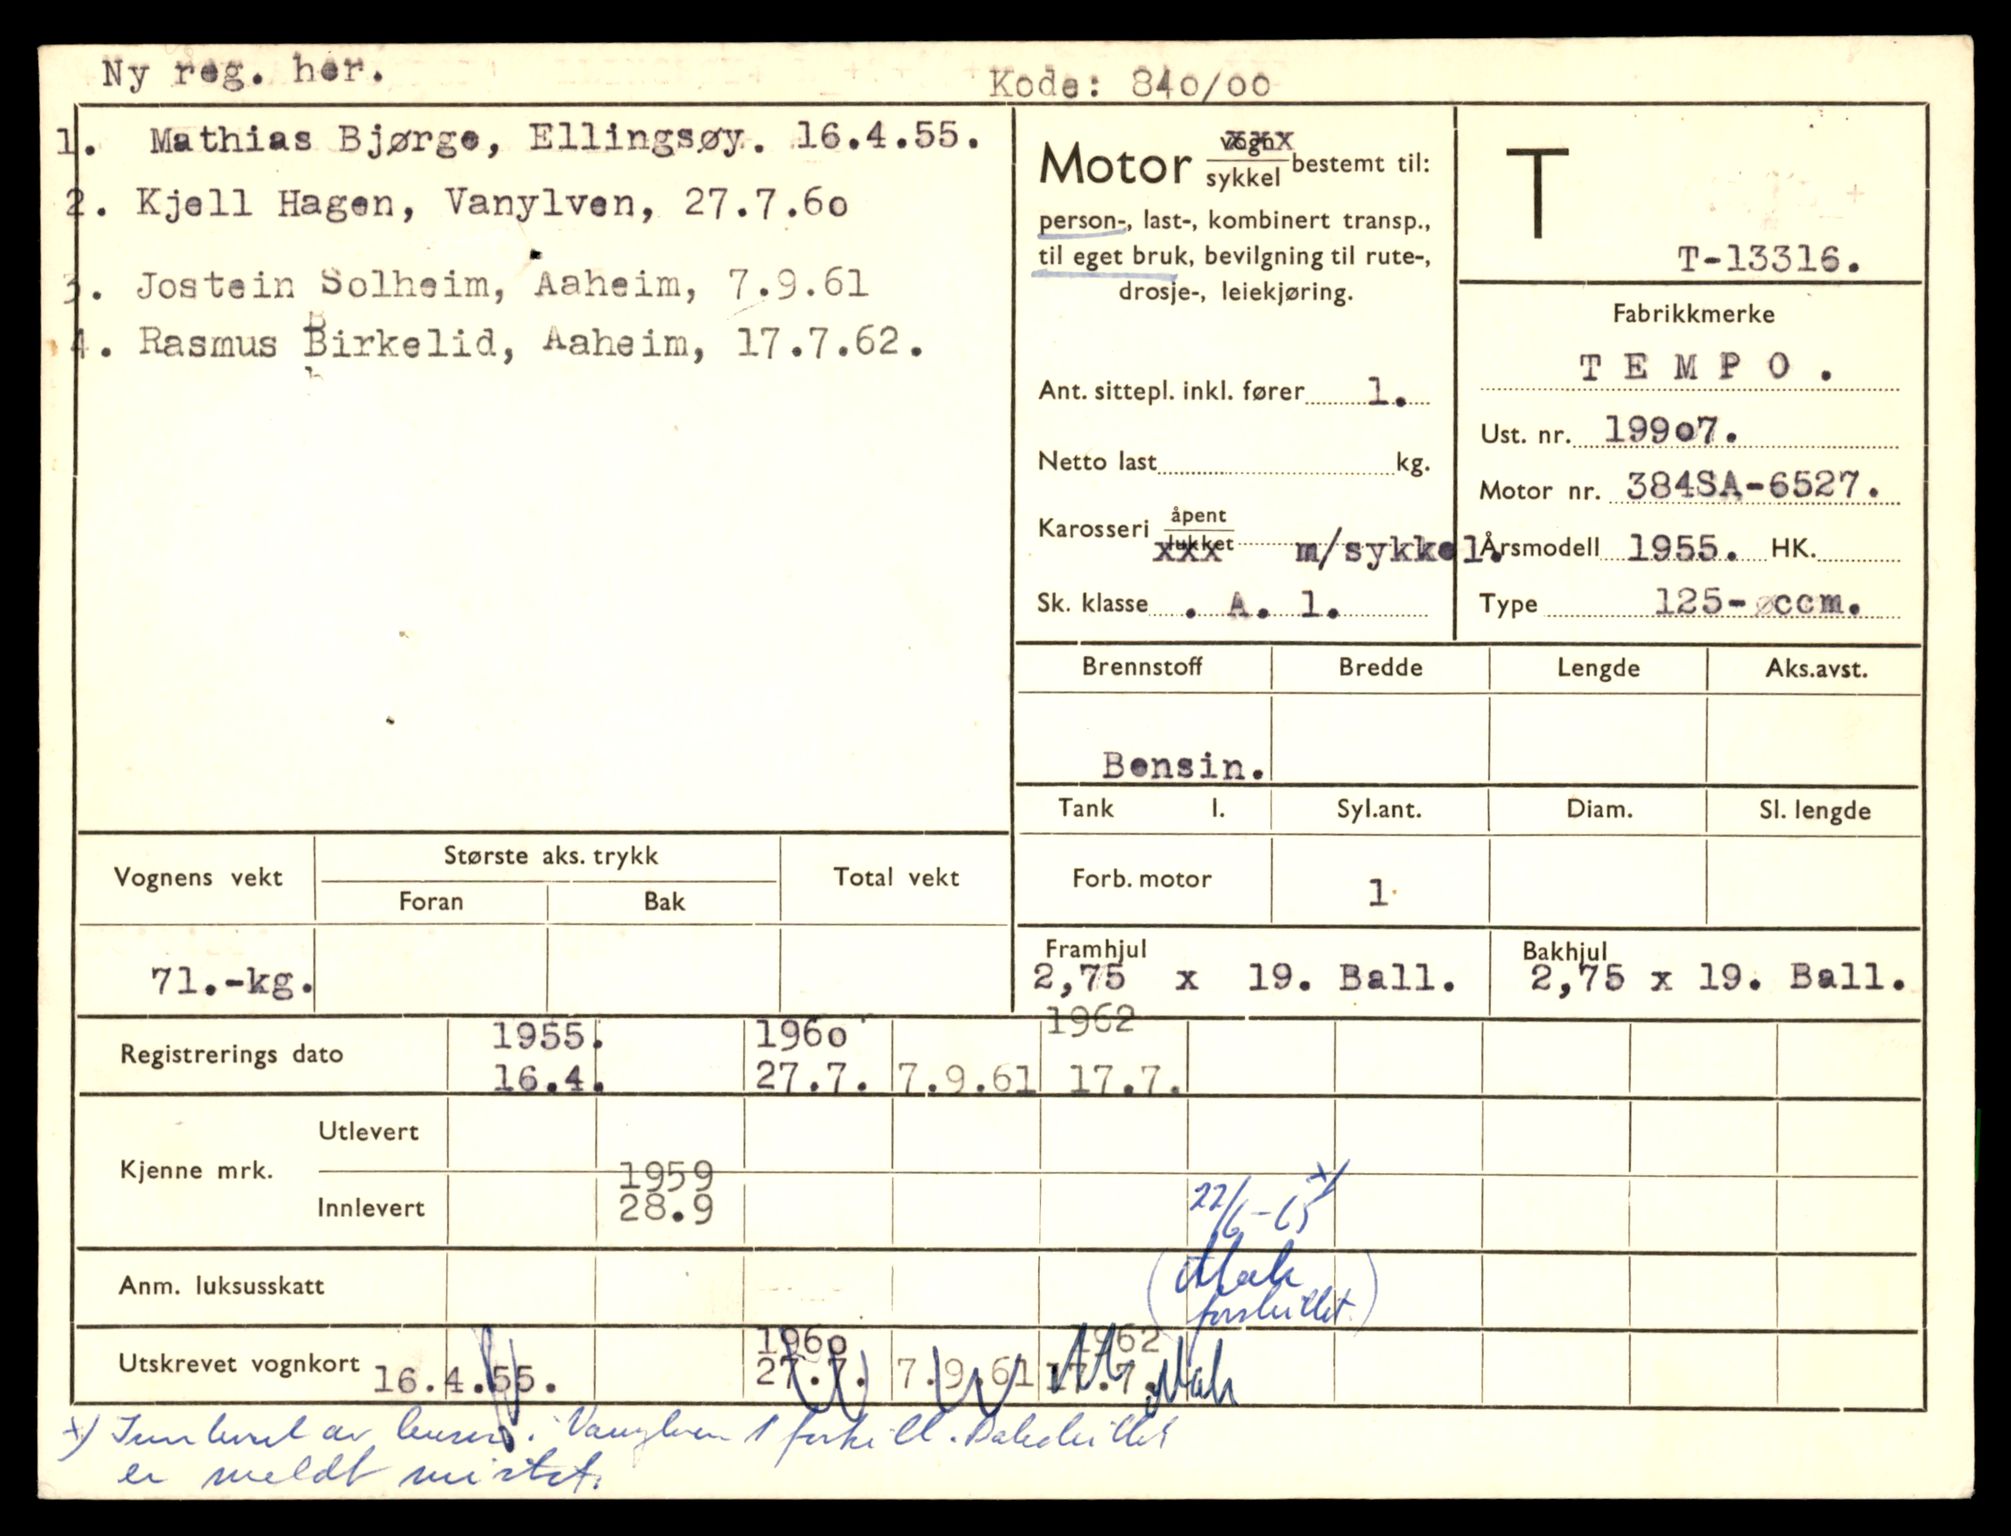 Ny reg. her.
Kode: 840/00
1. Mathias Bjørge, Ellingsøy. 16.4.55.
2. Kjell Hagen, Vanylven, 27.7.60
3. Jostein Solheim, Aaheim, 7.9.61
4. Rasmus Birkelid, Aaheim, 17.7.62.
Motor vogn xxx / sykkel bestemt til:
person-, last-, kombinert transp.,
til eget bruk, bevilgning til rute-,
drosje-, leiekjøring.
Ant. sittepl. inkl. fører 1.
Netto last kg.
Karosseri åpent / lukket xxx m/sykkel.
Sk. klasse . A. 1.
T
T-13316.
Fabrikkmerke
TEMPO.
Ust. nr. 19907.
Motor nr. 384SA-6527.
Årsmodell 1955. HK.
Type 125- ccm.
Brennstoff Bredde Lengde Aks.avst.
Bensin.
Tank l. Syl.ant. Diam. Sl. lengde
Forb. motor 1
Framhjul Bakhjul
2,75 x 19. Ball. 2,75 x 19. Ball.
Vognens vekt Største aks. trykk Total vekt
Foran Bak
71.-kg.
Registrerings dato 1955. 1960 1962
16.4. 27.7. 7.9.61 17.7.
Kjenne mrk. Utlevert
Innlevert 1959
28.9
22/6-65 x)
Anm. luksusskatt
(
forskiltet.)
Utskrevet vognkort 16.4.55. 1960 27.7. 7.9.61 1962 17.7.
x) Innlevert av lensm. i Vanylven 1 forskilt. Bakskiltet
er meldt mistet.